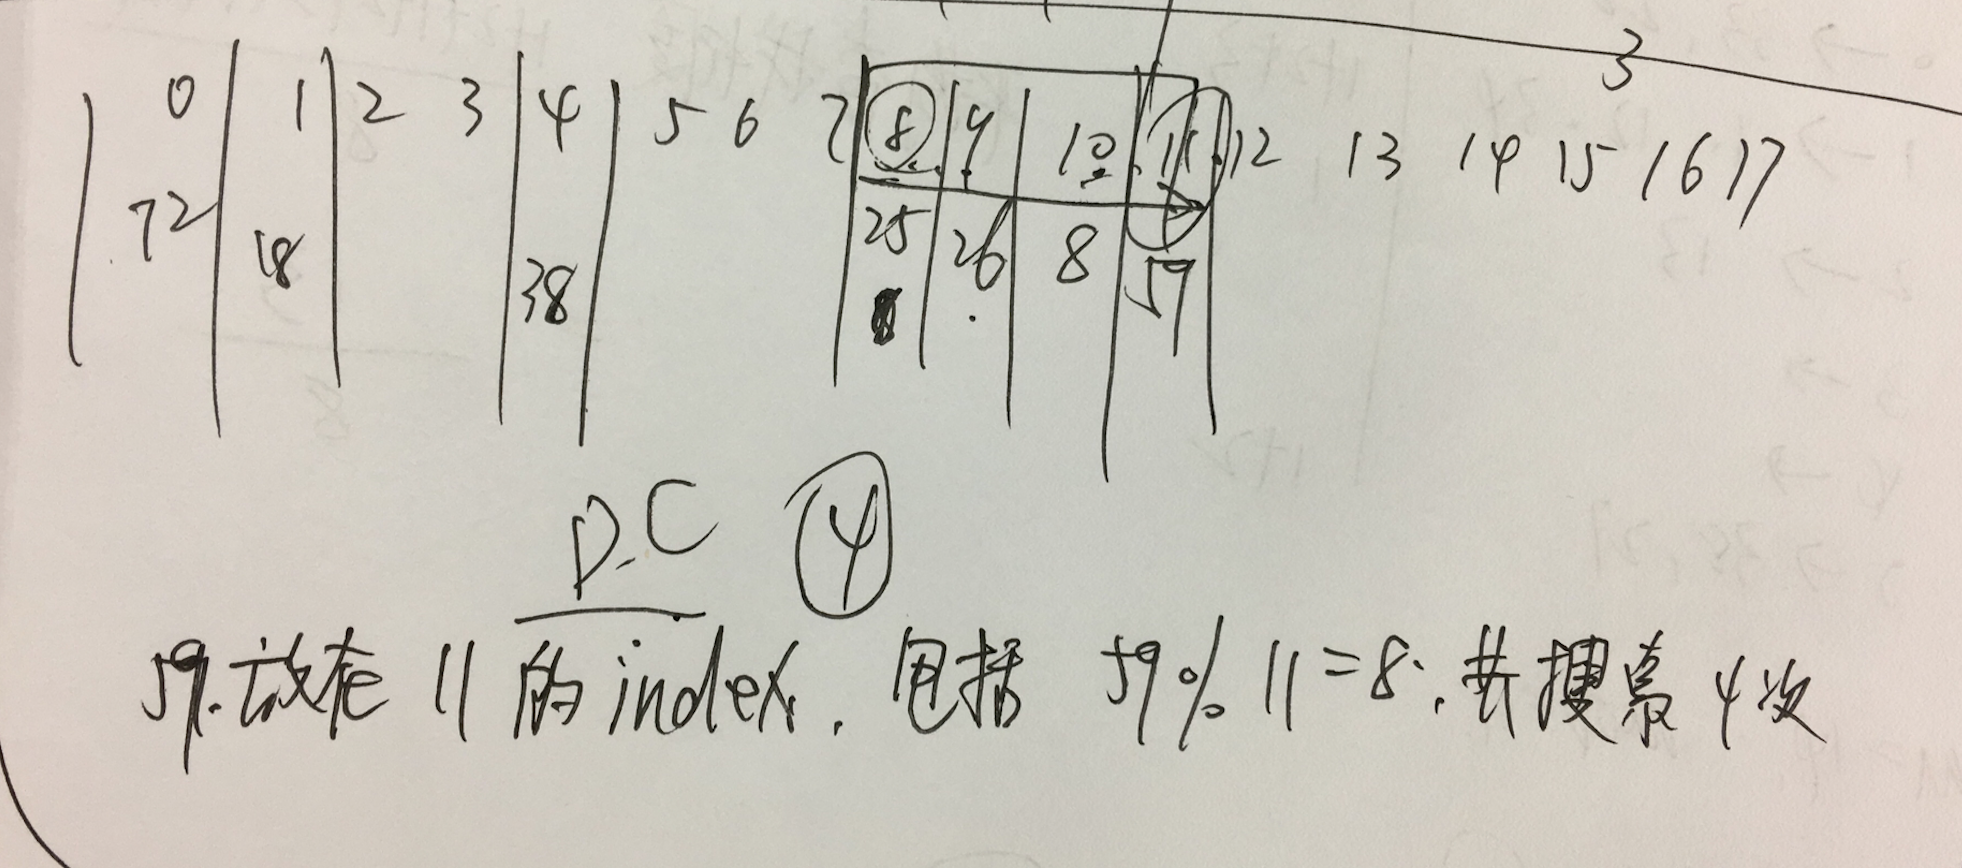 3
0 1 2 3 4 5 6 7 8 9 10 11 12 13 14 15 16 17
72 18 38 25 26 8 59
D.C 4
59.放在 11 的 index. 包括 59% 11=8. 共搜索 4次